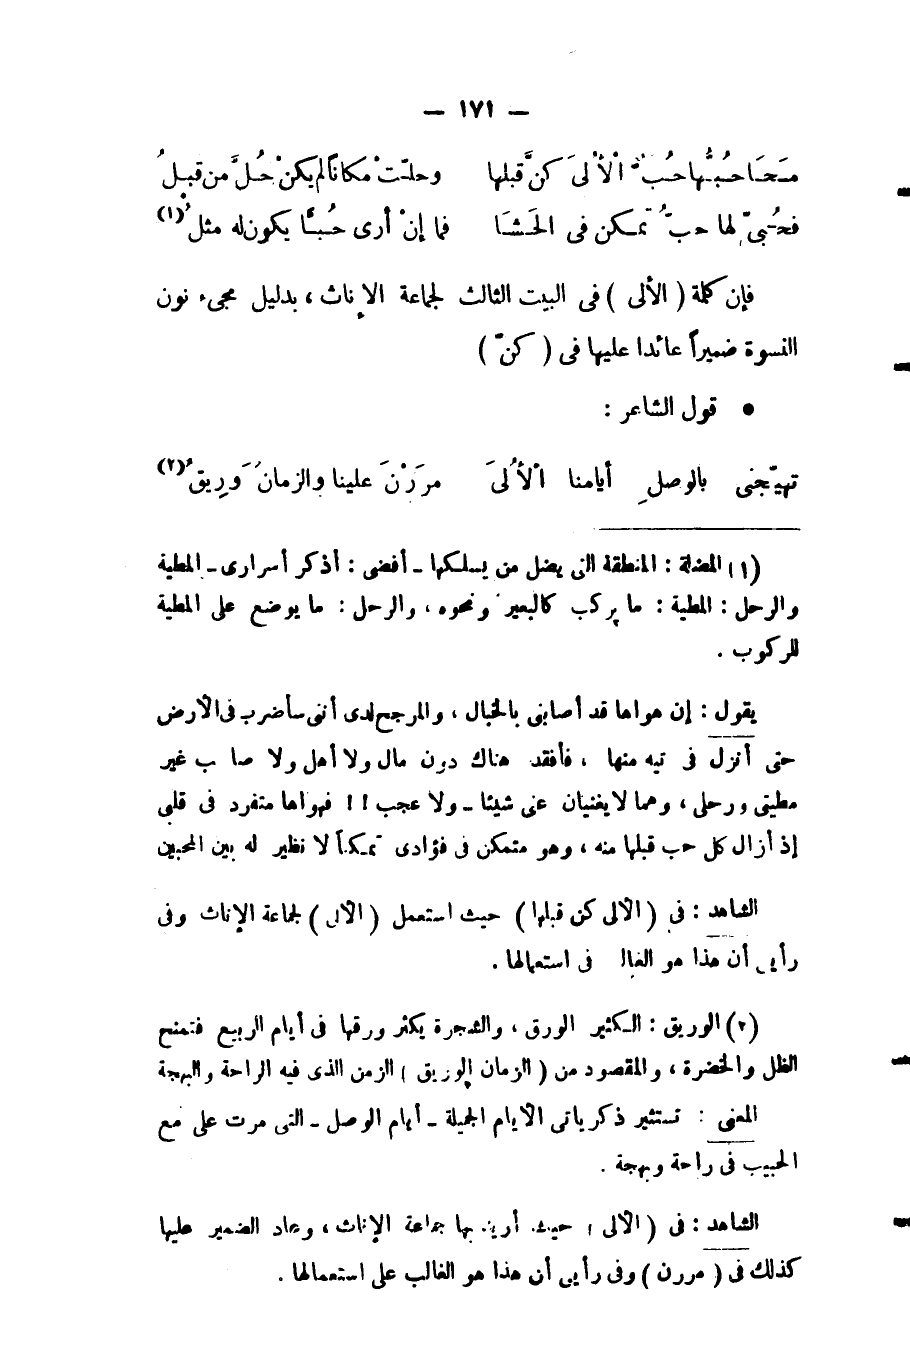 — ١٧١ —
مَحَا حُبُّها حُبَّ الأُلَى كنَّ قبلها وحلّتْ مكاناً لم يكنْ حُلَّ من قبلُ
فحُبِّي لها حبٌّ تمكن فى الحَشَا فما إنْ أرى حُبًّا يكون له مثلُ(١)
فإن كلمة ( الألى ) فى البيت الثالث لجماعة الإناث ، بدليل مجىء نون
النسوة ضميراً عائدا عليها فى ( كنّ )
● قول الشاعر :
تهيّجنى بالوصلِ أيامنا الأُلَى مرَرْنَ علينا والزمانُ وَرِيقُ(٢)
(١) المضلة : المنطقة التى يضل من يسلكها ـ أفضى : أذكر أسرارى ـ المطية
والرحل : المطية : ما يركب كالبعير ونحوه ، والرحل : ما يوضع على المطية
للركوب .
يقول : إن هواها قد أصابنى بالخبال ، والمرجح لدى أننى سأضرب فى الأرض
حتى أنزل فى تيه منها ، فأفقد هناك دون مال ولا أهل ولا صاحب غير
مطيتى ورحلى ، وهما لا يغنيان عنى شيئا ـ ولا عجب !! فهواها متفرد فى قلبى
إذ أزال كل حب قبلها منه ، وهو متمكن فى فؤادى تمكناً لا نظير له بين المحبين
الشاهد : فى ( الألى كن قبلها ) حيث استعمل ( الألى ) لجماعة الإناث وفى
رأيى أن هذا هو الغالب فى استعمالها .
(٢) الوريق : الكثير الورق ، والشجرة يكثر ورقها فى أيام الربيع فتمنح
الظل والخضرة ، والمقصود من ( الزمان الوريق ) الزمن الذى فيه الراحة والبهجة
المعنى : تستثير ذكرياتى الأيام الجميلة ـ أيام الوصل ـ التى مرت على مع
الحبيب فى راحة وبهجة .
الشاهد : فى ( الألى ) حيث أريد بها جماعة الإناث ، وعاد الضمير عليها
كذلك فى ( مررن ) وفى رأيى أن هذا هو الغالب على استعمالها .